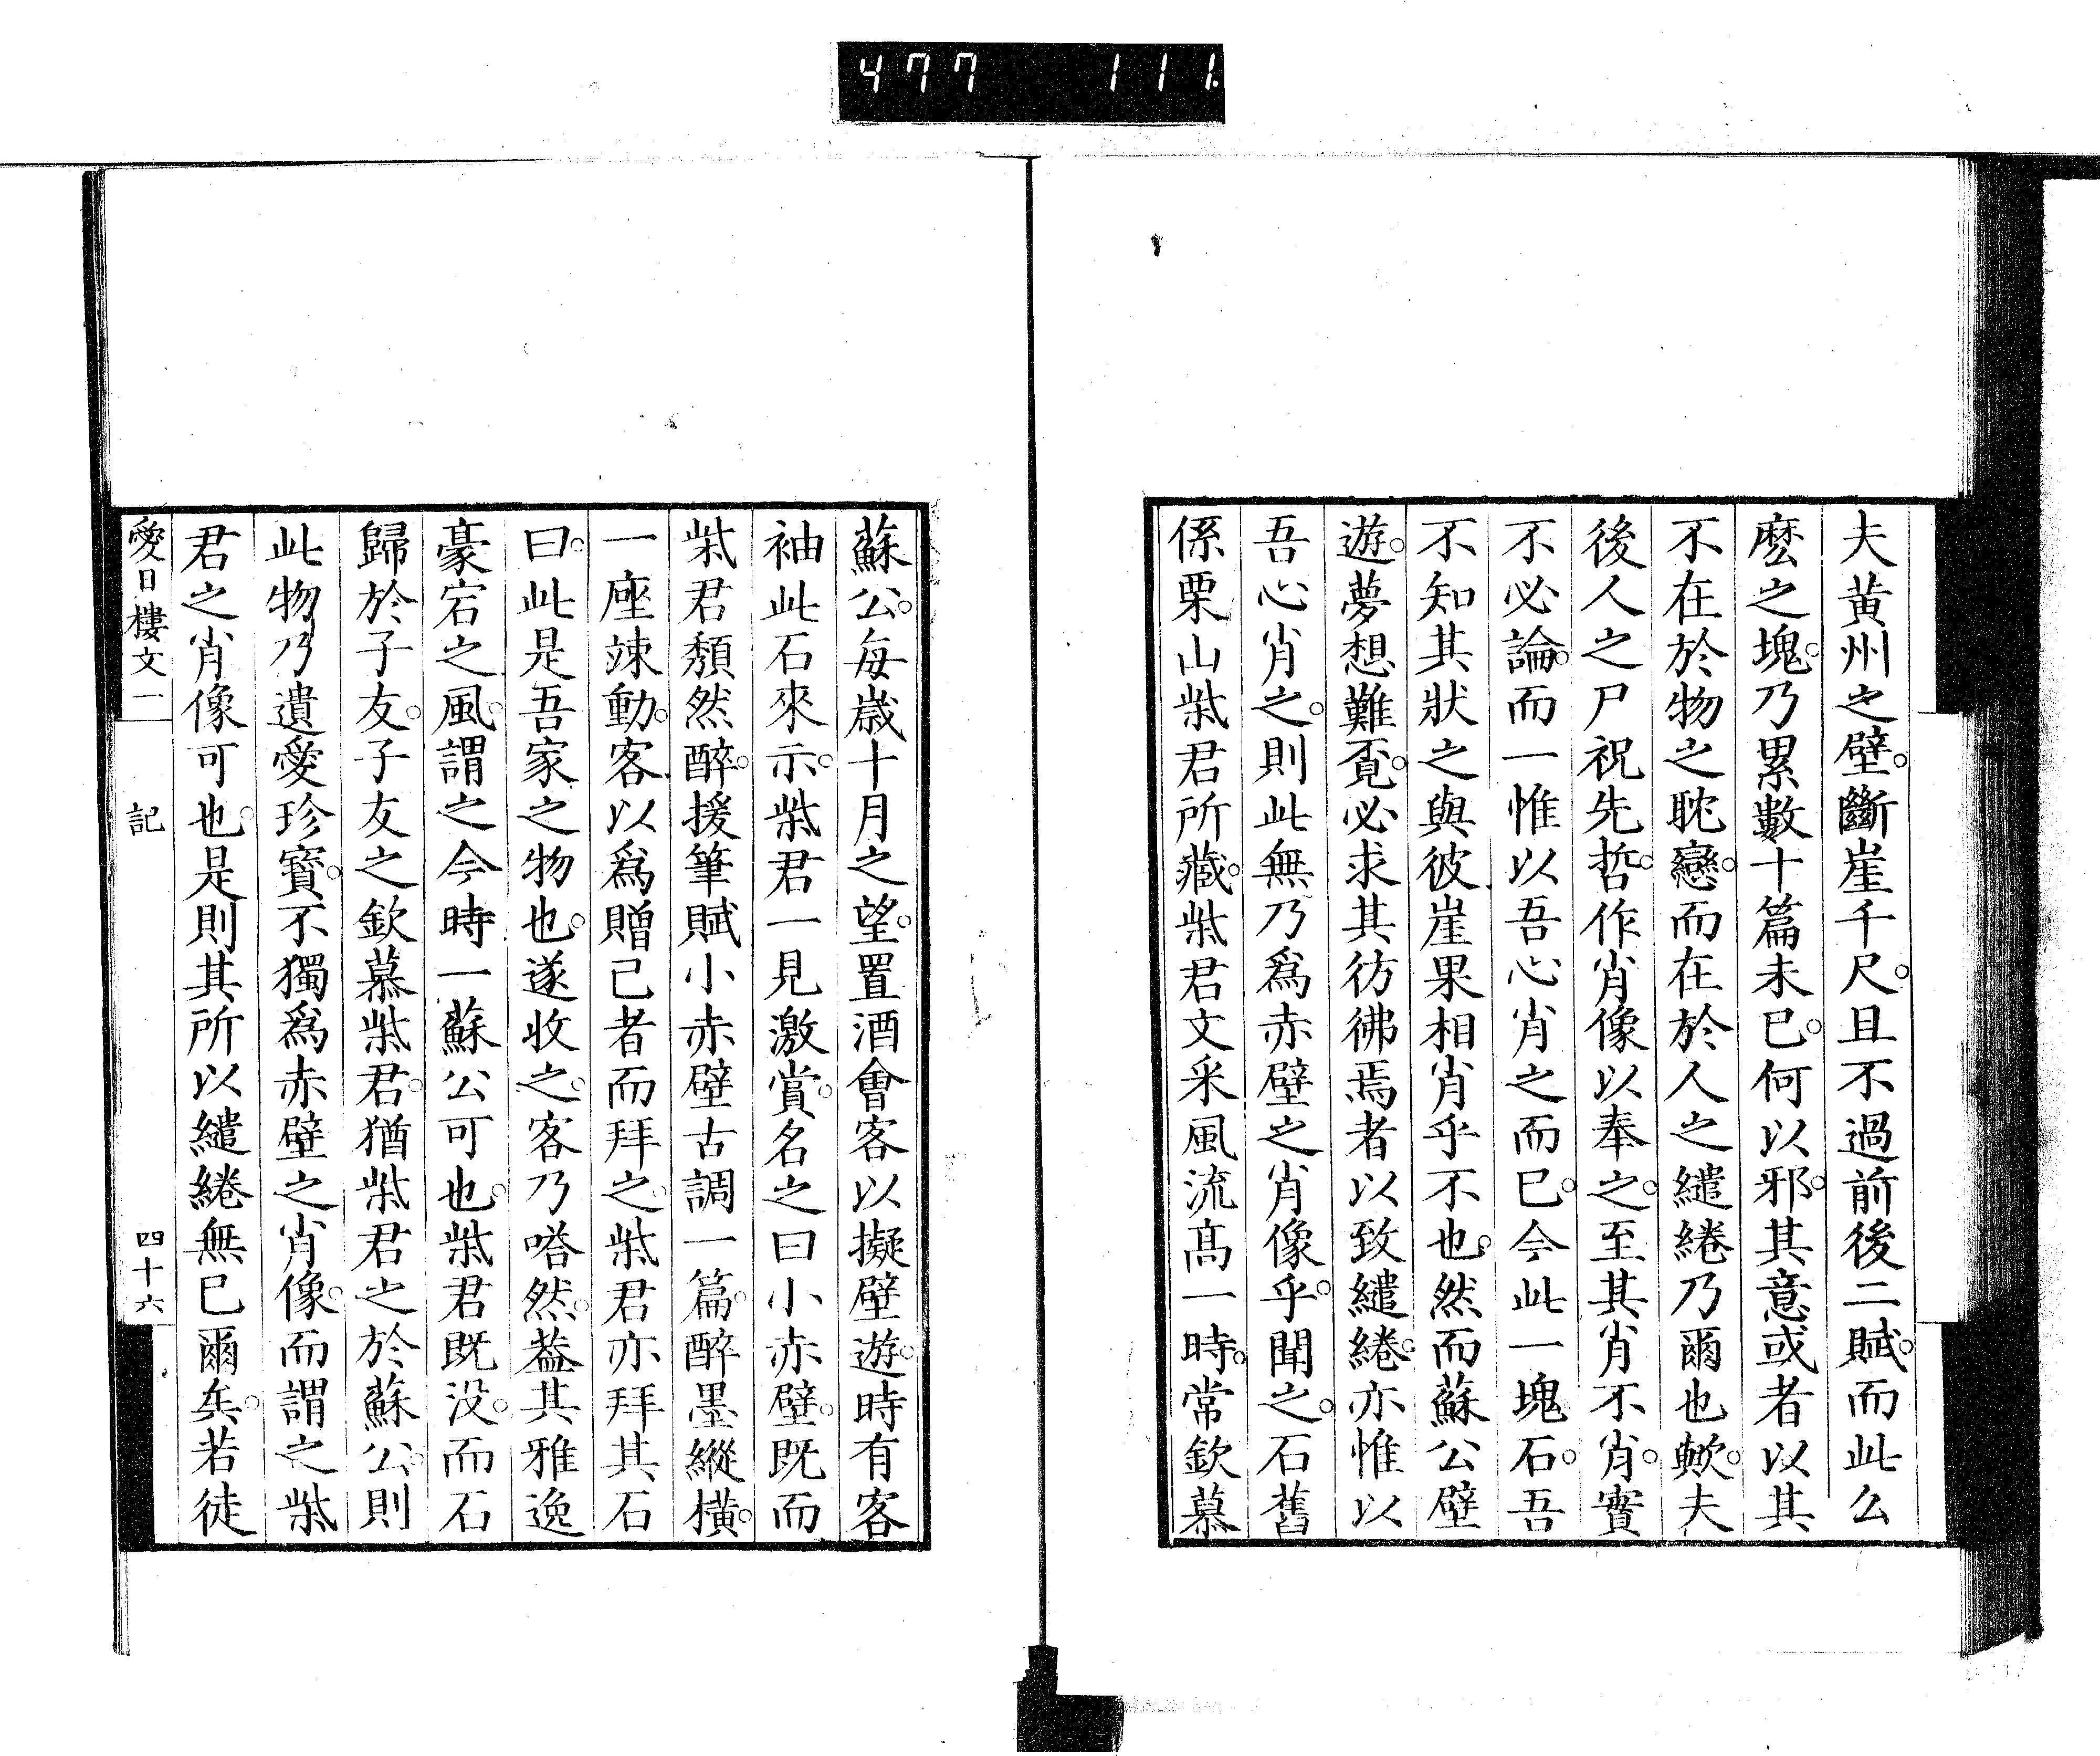 477 111
夫黃州之壁。斷崖千尺。且不過前後二賦。而此么
麽之塊。乃累數十篇未已。何以邪。其意或者以其
不在於物之耽戀。而在於人之繾綣乃爾也歟。夫
後人之尸祝先哲。作肖像以奉之。至其肖不肖。實
不必論。而一惟以吾心肖之而已。今此一塊石。吾
不知其狀之與彼崖果相肖乎不也。然而蘇公壁
遊。夢想難覔。必求其彷彿焉者以致繾綣。亦惟以
吾心肖之。則此無乃爲赤壁之肖像乎。聞之。石舊
係栗山柴君所藏。柴君文采風流高一時。常欽慕
蘇公。每歲十月之望。置酒會客以擬壁遊。時有客
袖此石來示。柴君一見激賞。名之曰小赤壁。既而
柴君頽然醉。援筆賦小赤壁古調一篇。醉墨縱橫。
一座竦動。客以爲贈己者而拜之。柴君亦拜其石
曰。此是吾家之物也。遂收之。客乃嗒然。葢其雅逸
豪宕之風。謂之今時一蘇公可也。柴君既没。而石
歸於子友。子友之欽慕柴君。猶柴君之於蘇公。則
此物乃遺愛珍寶。不獨爲赤壁之肖像。而謂之柴
君之肖像可也。是則其所以繾綣無已爾矣。若徒
愛日樓文一 記 四十六